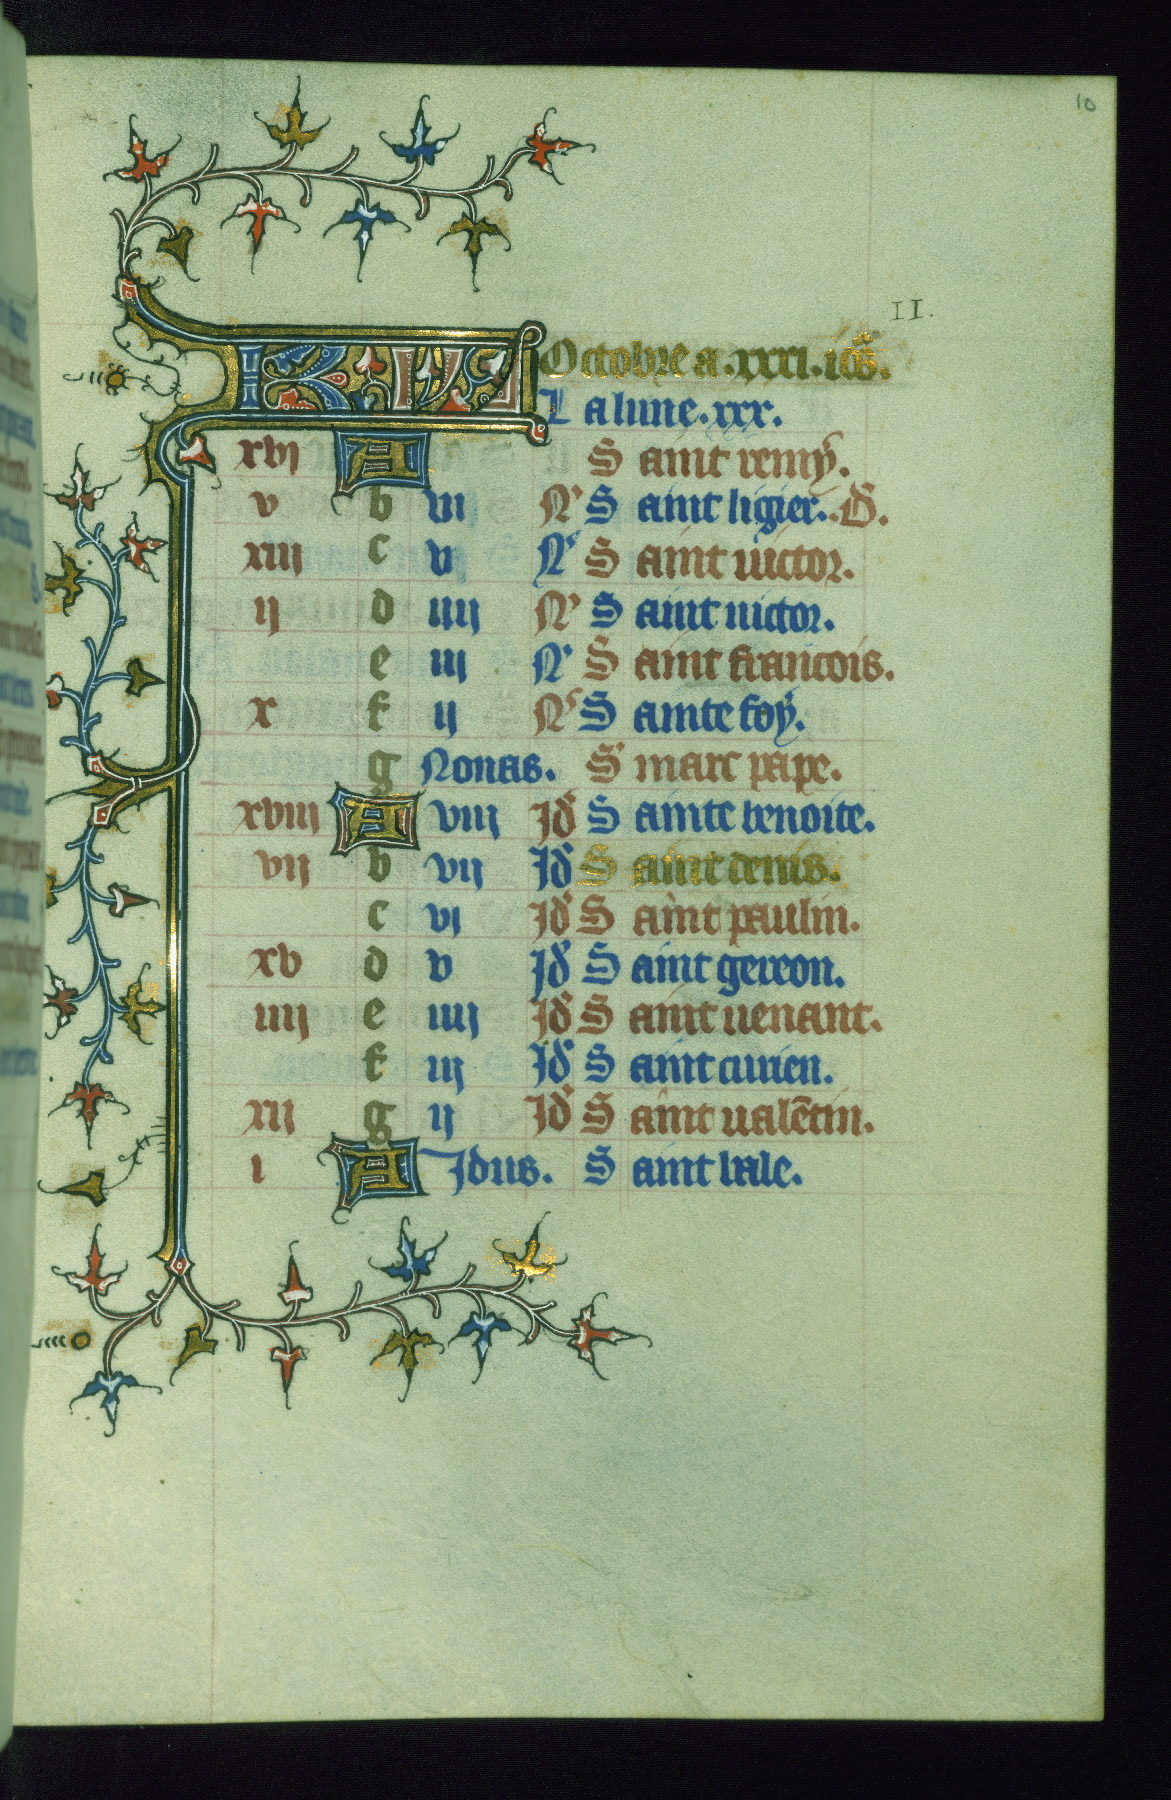 10
II.
KL Octobre a .xxxi. iors.
La lune .xxx.
xvi A Saint remy.
v b vi N' Saint ligier. D.
xiii c v N' Saint uictor.
ii d iiii N' Saint uictor.
e iii N' Saint francois.
x f ii N' Sainte foy.
g Nonas. S' marc pape.
xviii A viii Id' Sainte benoite.
vii b vii Id' Saint denis.
c vi Id' Saint paulin.
xv d v Id' Saint gereon.
iiii e iiii Id' Saint uenant.
f iii Id' Saint
xii g ii Id' Saint ualētin.
i A Idus. Saint